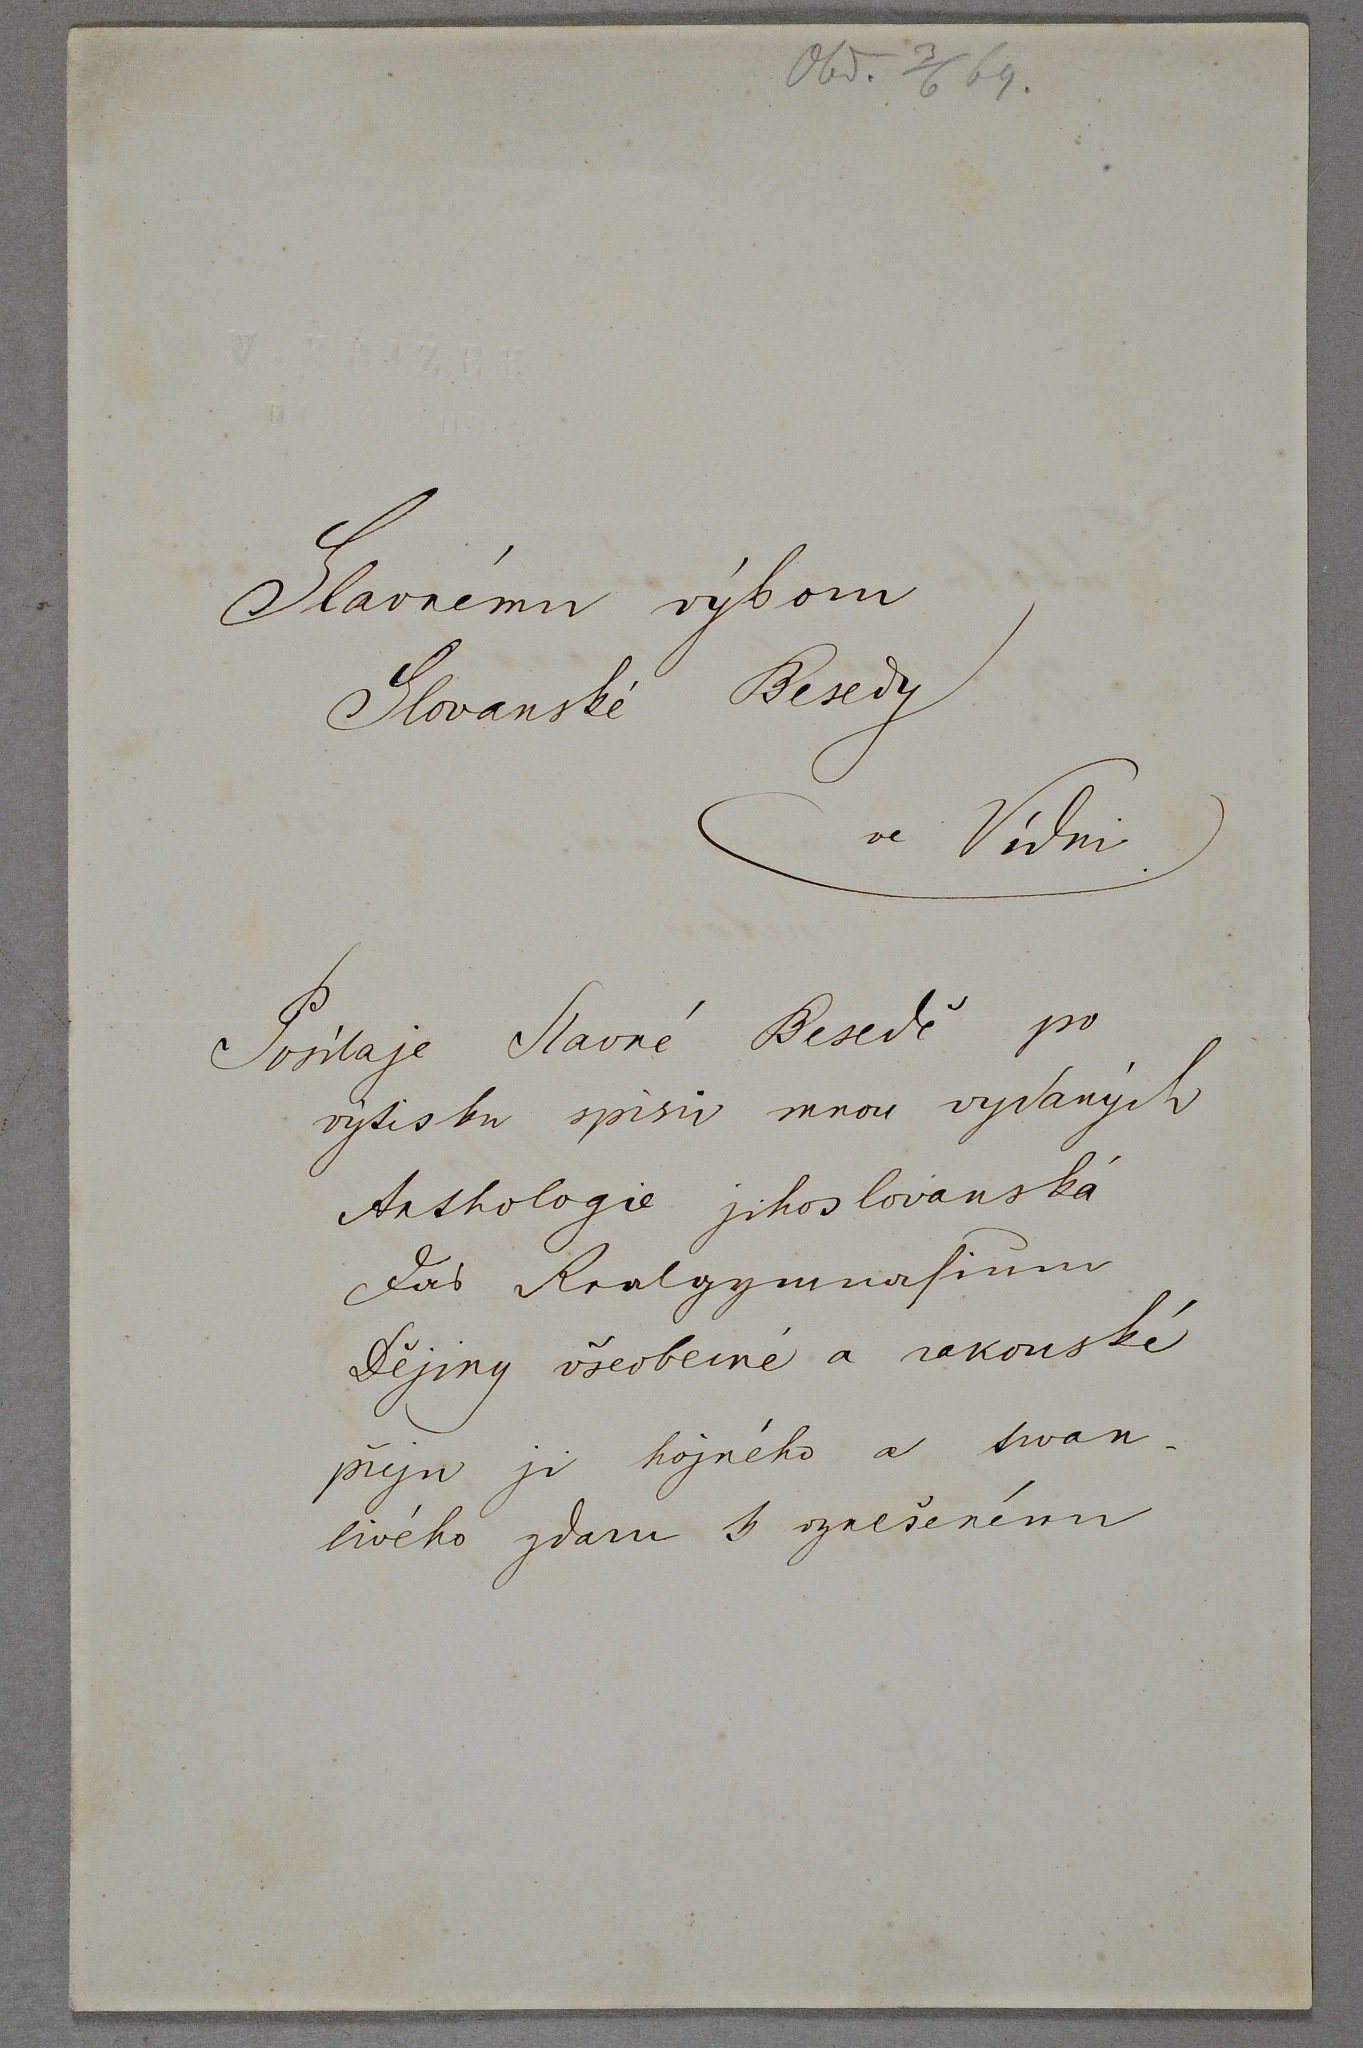 Obd. 3/6 69.
V. KŘÍŽEK
Slavnému výboru
Slovanské Besedy
ve Vídni
Posílaje Slavné Besedě po
výtisku spisů mnou vydaných
Anthologie jihoslovanská
Das Realgymnasium
Dějiny všeobecné a rakouské
přeju jí hojného a trvan-
livého zdaru k vznešenému